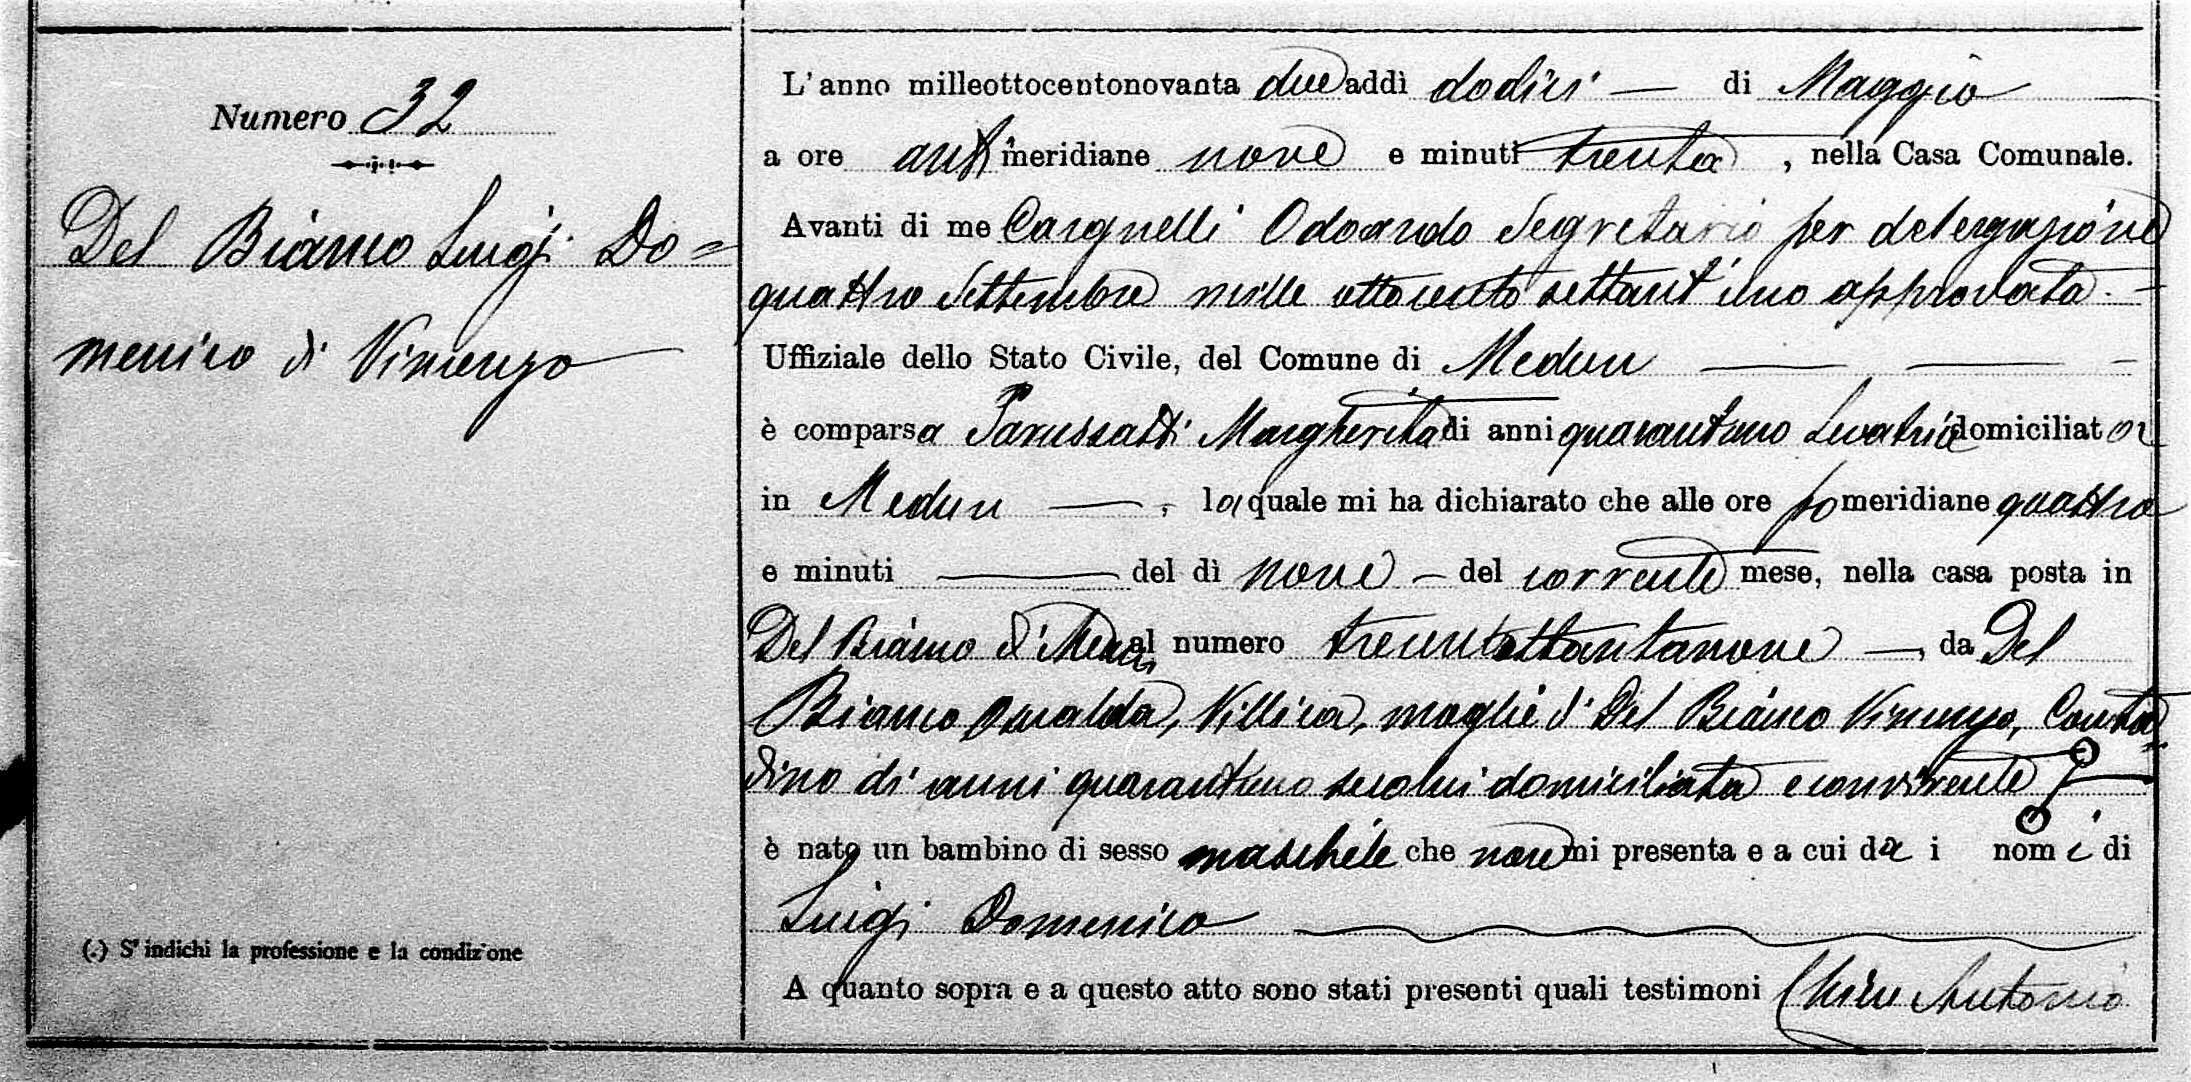 Numero 32
Del Bianco Luigi Do=
menico di Vincenzo
(.) S'indichi la professione e la condizione
L'anno milleottocentonovanta due addì dodici — di Maggio
a ore anti meridiane nove e minuti trenta, nella Casa Comunale.
Avanti di me Cargnelli Odoardo Segretario per delegazione
quattro Settembre mille ottocento settant'uno approvata
Uffiziale dello Stato Civile, del Comune di Medun
è comparsa Parussatti Margherita di anni quarantuno Levatrice domiciliata
in Medun —, la quale mi ha dichiarato che alle ore pomeridiane quattro
e minuti — del dì nove — del corrente mese, nella casa posta in
Del Bianco di al numero trecentottantanove —, da Del
Bianco Osualda, Villica, moglie di Del Bianco Vincenzo, Conta=
dino di anni quarantuno seco lui domiciliata e convivente
è nato un bambino di sesso maschile che non mi presenta e a cui da i nomi di
Luigi Domenico
A quanto sopra e a questo atto sono stati presenti quali testimoni Antonio